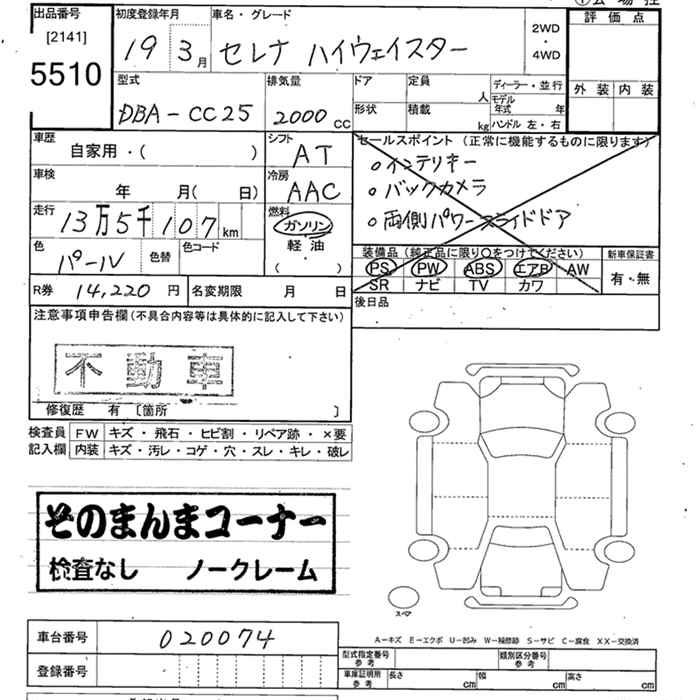 ①会場控
出品番号
[2141]
5510
初度登録年月
19 3月
車名・グレード
セレナ ハイウェイスター
2WD
・
4WD
評価点
外装 内装
型式
DBA-CC25
排気量
2000 CC
ドア
定員
人
形状
積載
kg
ディーラー・並行
モデル年式 年
ハンドル 左・右
車歴
自家用・( )
シフト
AT
車検
年 月( 日)
冷房
AAC
走行
13万5千107km
燃料
ガソリン
軽油
( )
色
パール
色替
色コード
セールスポイント(正常に機能するものに限ります)
○インテリキー
○バックカメラ
○両側パワースライドドア
装備品(純正品に限り○をつけてください)
PS PW ABS エアB AW
SR ナビ TV カワ
新車保証書
有・無
R券 14,220円
名変期限 月 日
後日品
注意事項申告欄(不具合内容等は具体的に記入して下さい)
不動車
修復歴 有 〔箇所 〕
検査員記入欄
FW キズ・飛石・ヒビ割・リペア跡・×要
内装 キズ・汚レ・コゲ・穴・スレ・キレ・破レ
そのまんまコーナー
検査なし ノークレーム
スペア
A−キズ E−エクボ U−凹み W−補修跡 S−サビ C−腐食 XX−交換済
車台番号 020074
登録番号
型式指定番号 参考
類別区分番号 参考
車庫証明用 参考 長さ cm 幅 cm 高さ cm